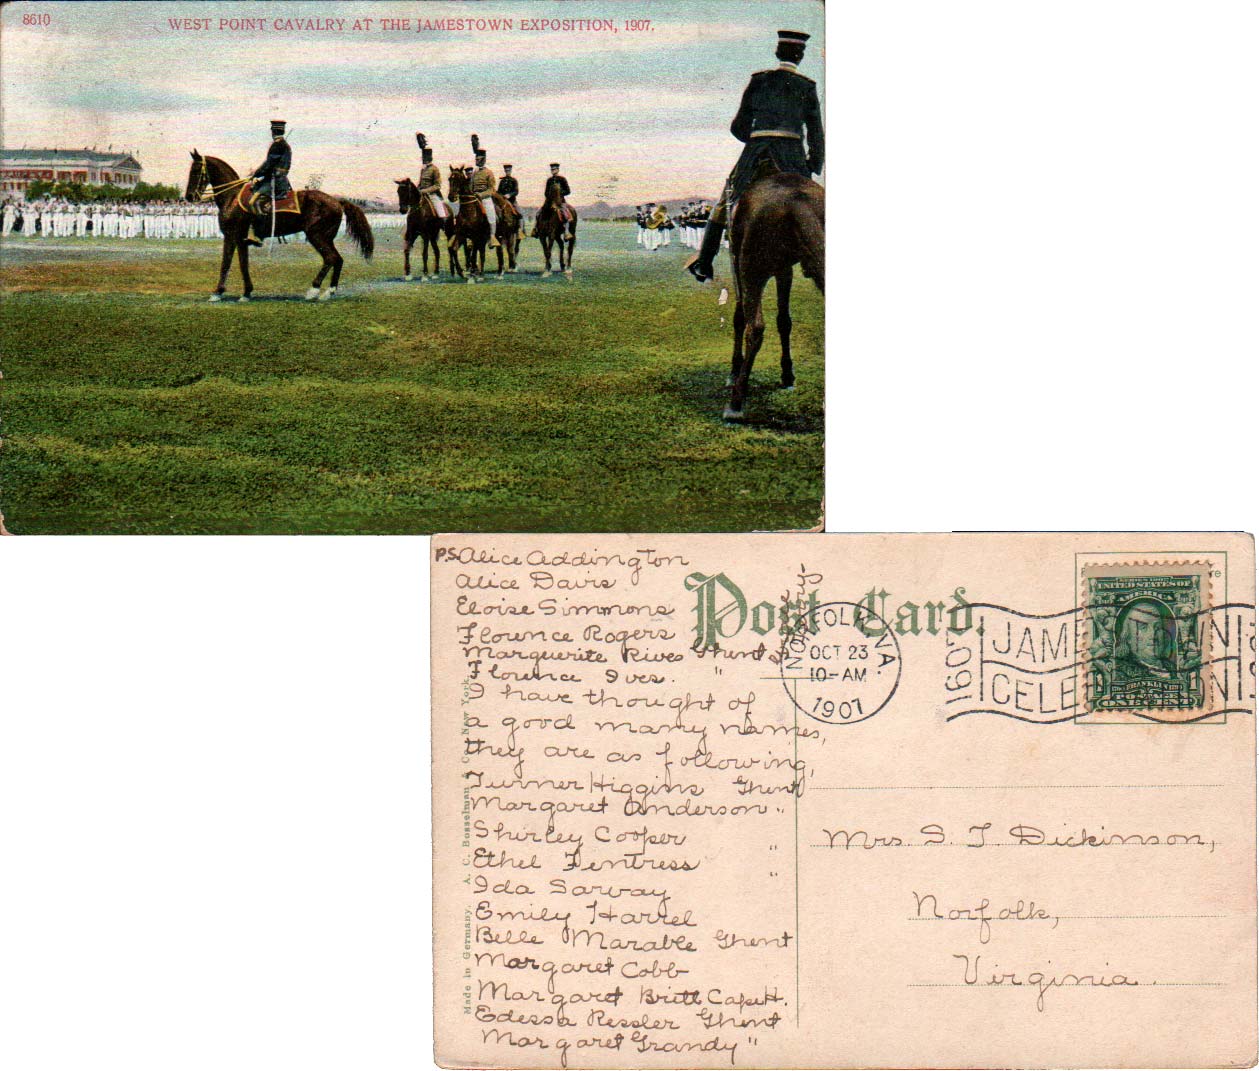 8610
WEST POINT CAVALRY AT THE JAMESTOWN EXPOSITION, 1907.
P.S. Alice Addington
Alice Davis
Eloise Simmons
Florence Rogers
Marguerite Rives Ghent
Florence Ives. "
I have thought of
a good many names,
they are as following,
Turner Higgins Ghent
Margaret Anderson "
Shirley Cooper "
Ethel Fentress "
Ida Sarvay
Emily Harrel
Belle Marable Ghent
Margaret Cobb
Margaret Britt Cape H.
Edessa Ressler Ghent
Margaret Grandy "
Made in Germany. A. C. Bosselman & Co., New York.
Post Card.
NORFOLK, VA.
OCT 23
10-AM
1907
1907
JAMESTOWN
CELE
SERIES 1902
UNITED STATES OF
AMERICA
FRANKLIN
1 POSTAGE 1
ONE CENT
Mrs. S. T. Dickinson,
Norfolk,
Virginia.